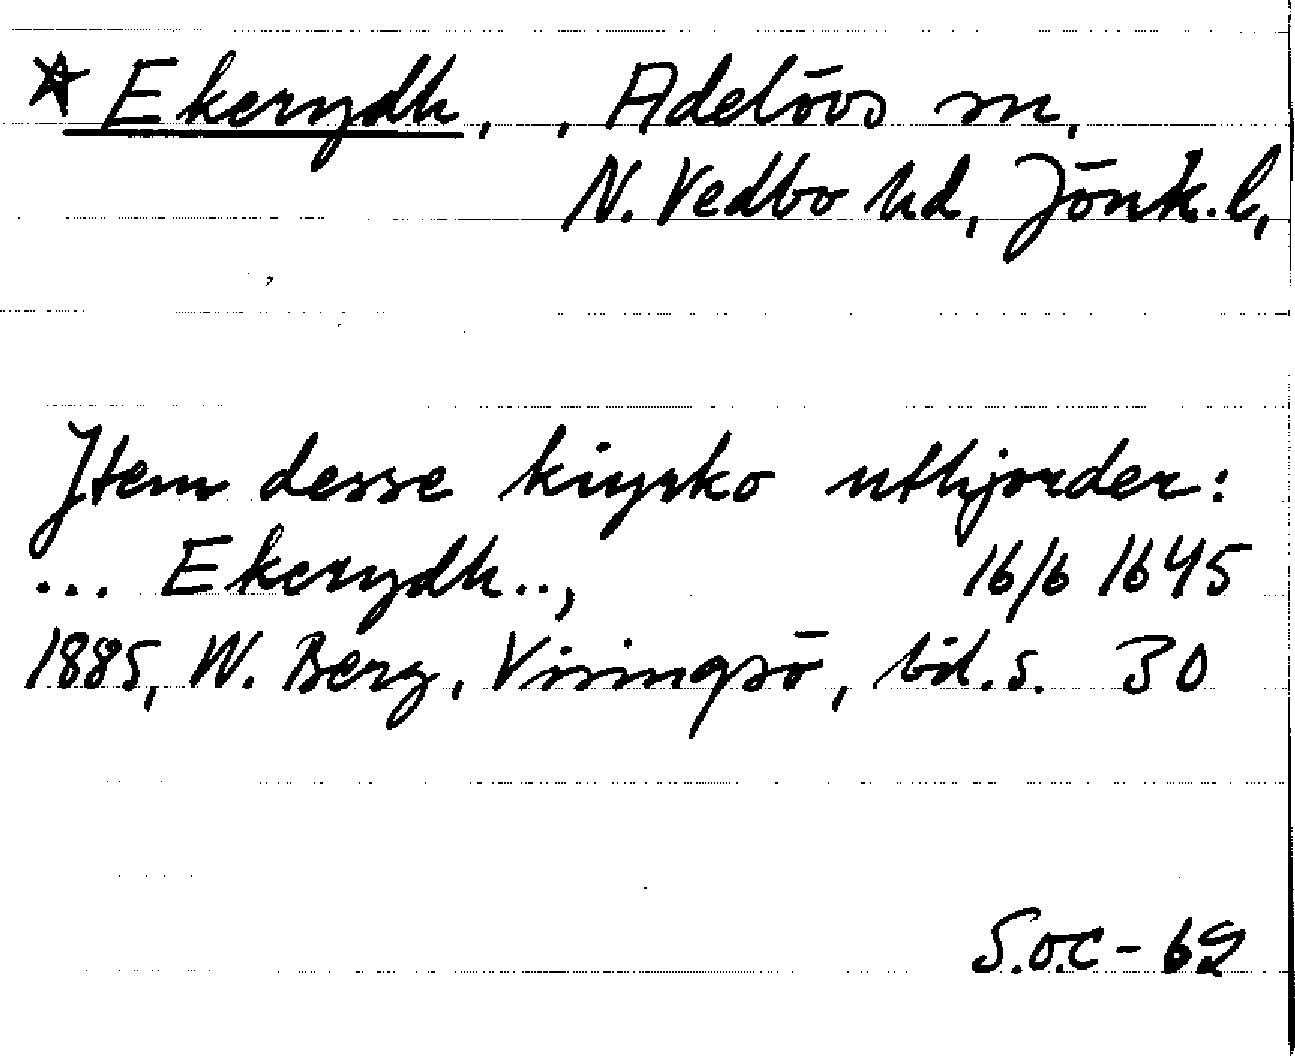 * Ekerydh, , Adelövs sn,
N. Vedbo hd, Jönk. l,
Jtem desse kiyrko uthjorder:
... Ekerydh.., 16/6 1645
1885, W. Berg, Visingsö, bd. s. 30
S.O.C - 69